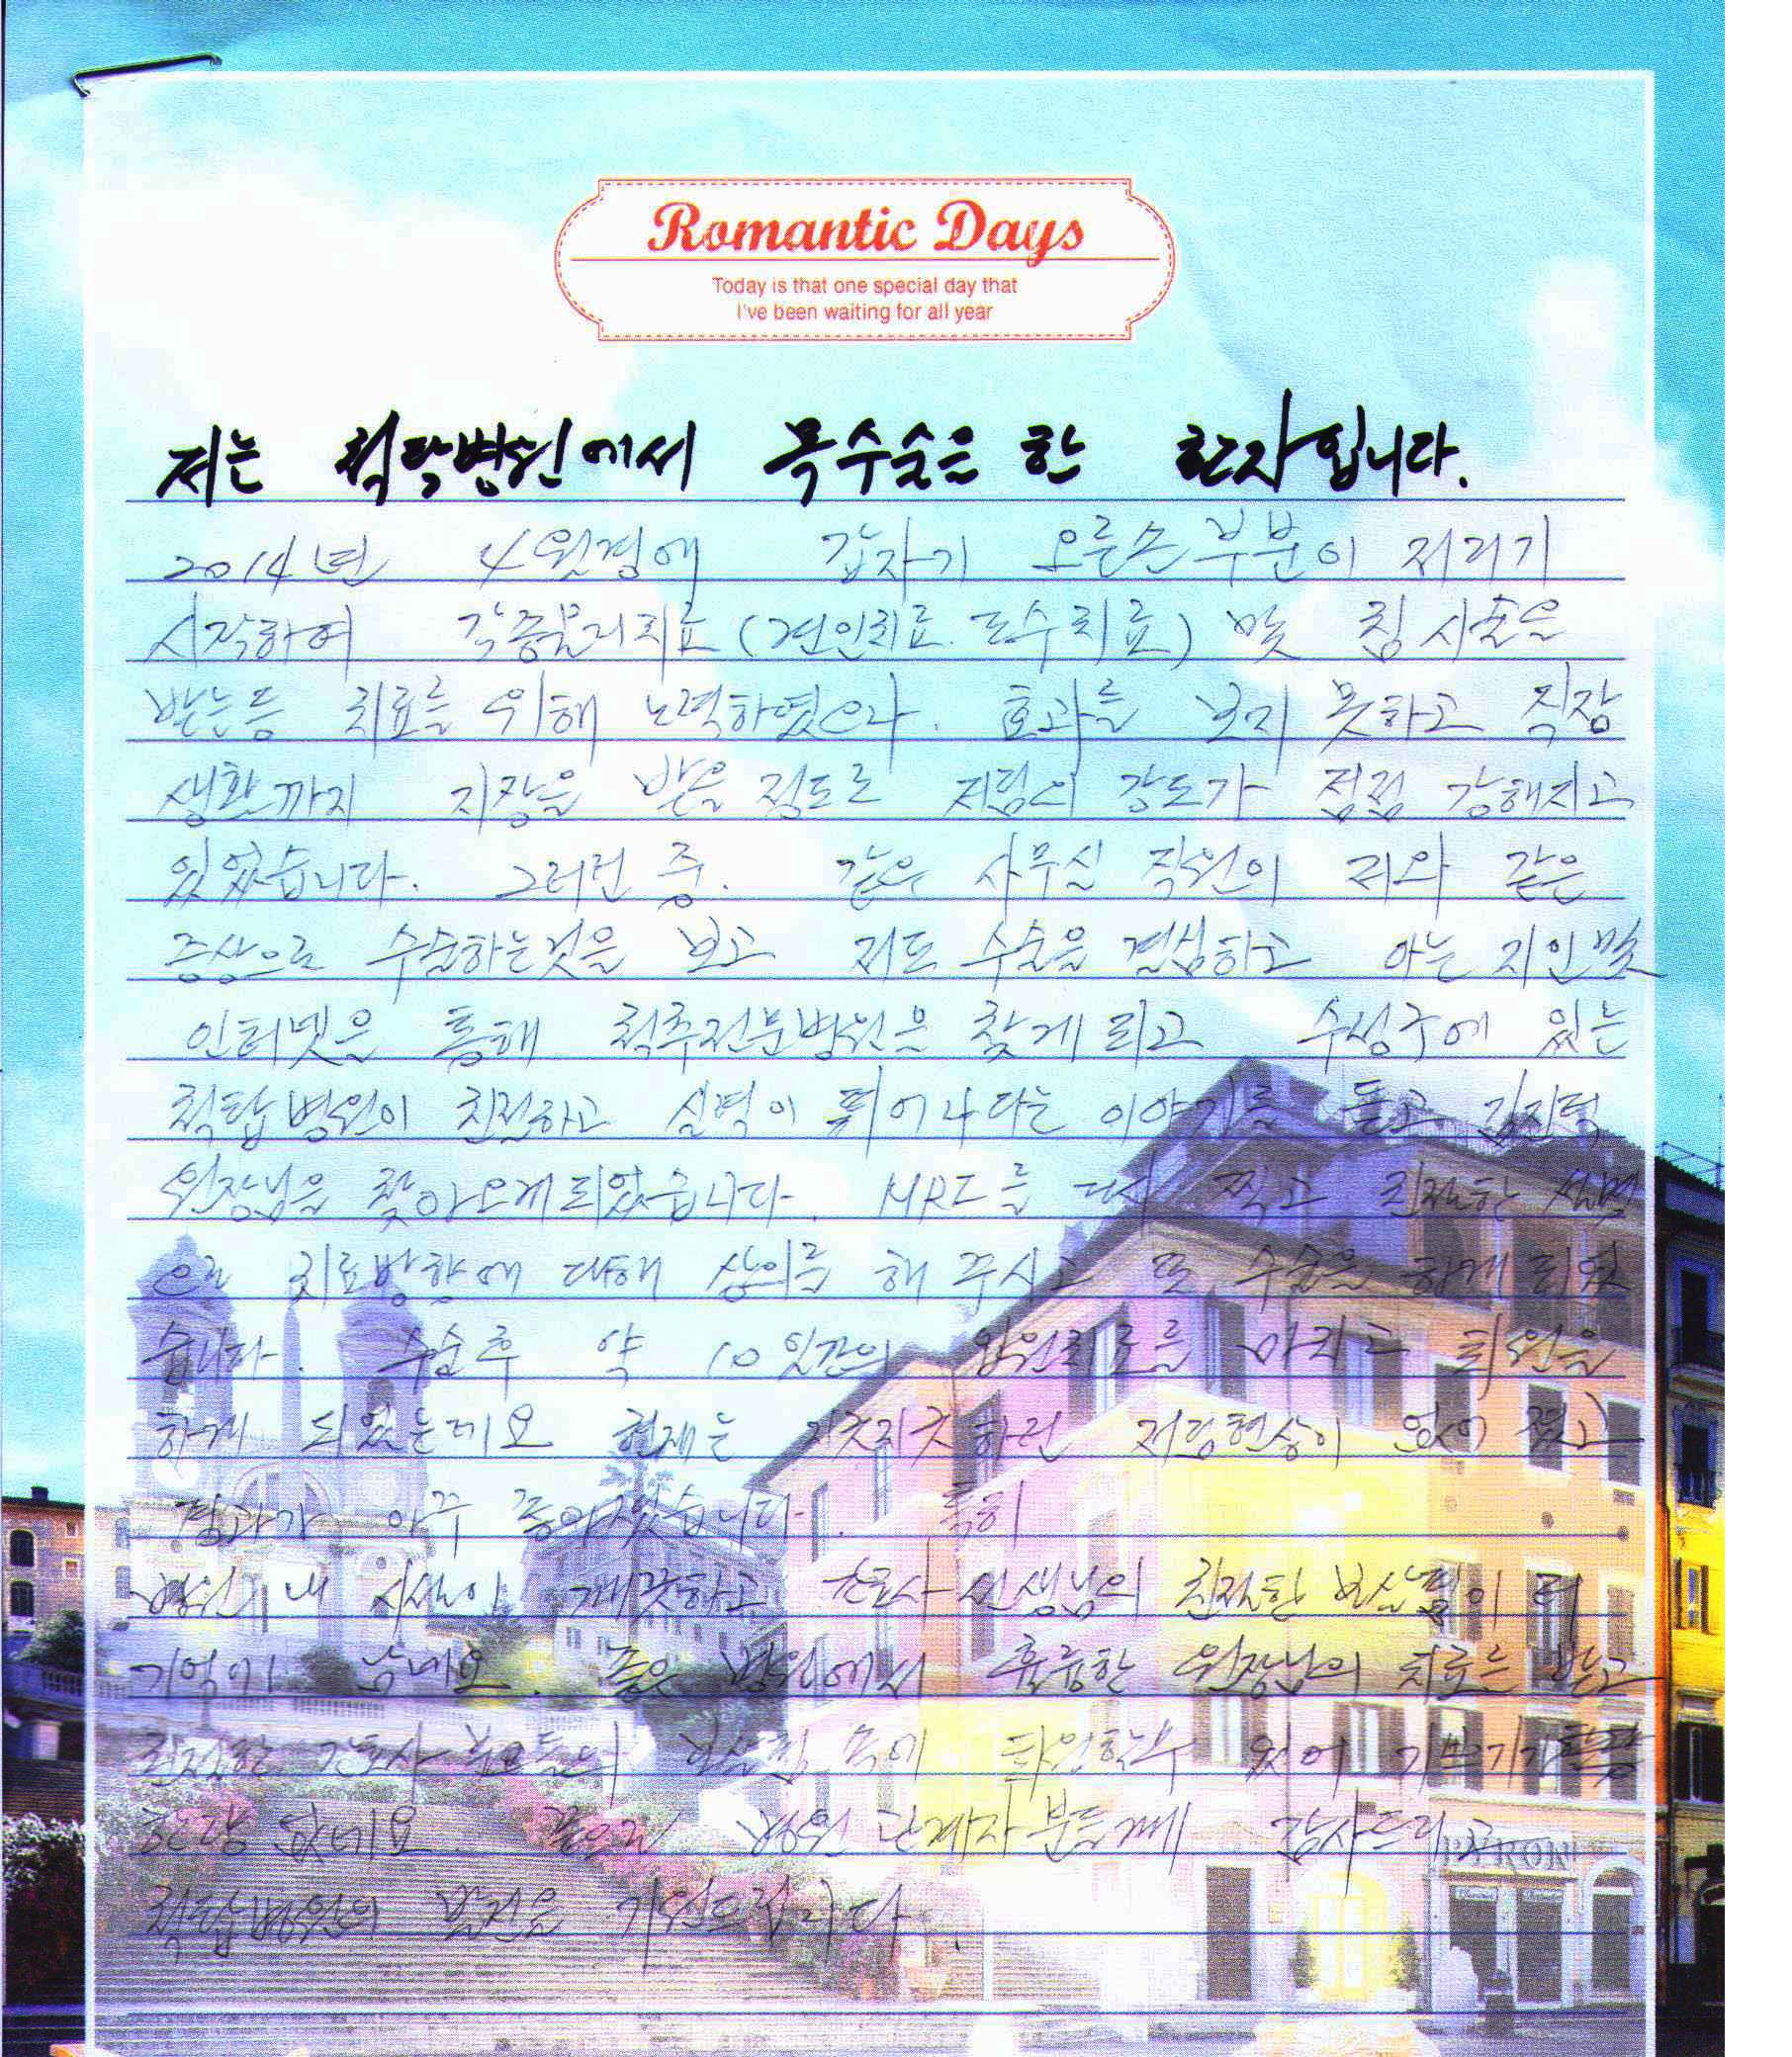 Romantic Days
Today is that one special day that
I've been waiting for all year
저는 척탑병원에서 목수술은 한 환자입니다.
2014년 4월경에 갑자기 오른손 부분이 저리기
시작하여 각종물리치료(견인치료. 도수치료) 및 침 시술을
받는등 치료를 위해 노력하였으나. 효과를 보지 못하고 직장
생활까지 지장을 받을 정도로 저림의 강도가 점점 강해지고
있었습니다. 그러던 중. 같은 사무실 직원이 저와 같은
증상으로 수술하는것을 보고 저도 수술을 결심하고 아는 지인 및
인터넷을 통해 척추전문병원을 찾게 되고 수성구에 있는
척탑병원이 친절하고 실력이 뛰어나다는 이야기를 듣고 김진덕
원장님을 찾아오게되었습니다. MRI를 다시 찍고 친절한 설명
으로 치료방향에 대해 상의를 해 주시고 또 수술을 하게 되었
습니다. 수술후 약 10일간의 입원치료를 마치고 퇴원을
하게 되었는데요 현재는 지긋지긋하던 저림현상이 없어 졌고
결과가 아주 좋아졌습니다. 특히
병원 내 시설이 깨끗하고 간호사 선생님의 친절한 보살핌이 더
기억에 남네요. 좋은 병원에서 훌륭한 원장님의 치료를 받고
친절한 간호사 분들의 보살핌 속에 퇴원할수 있어 기쁘기가
한량 없네요 병원 관계자 분들께 감사드리고
척탑병원의 발전을 기원드립니다.
PERONI